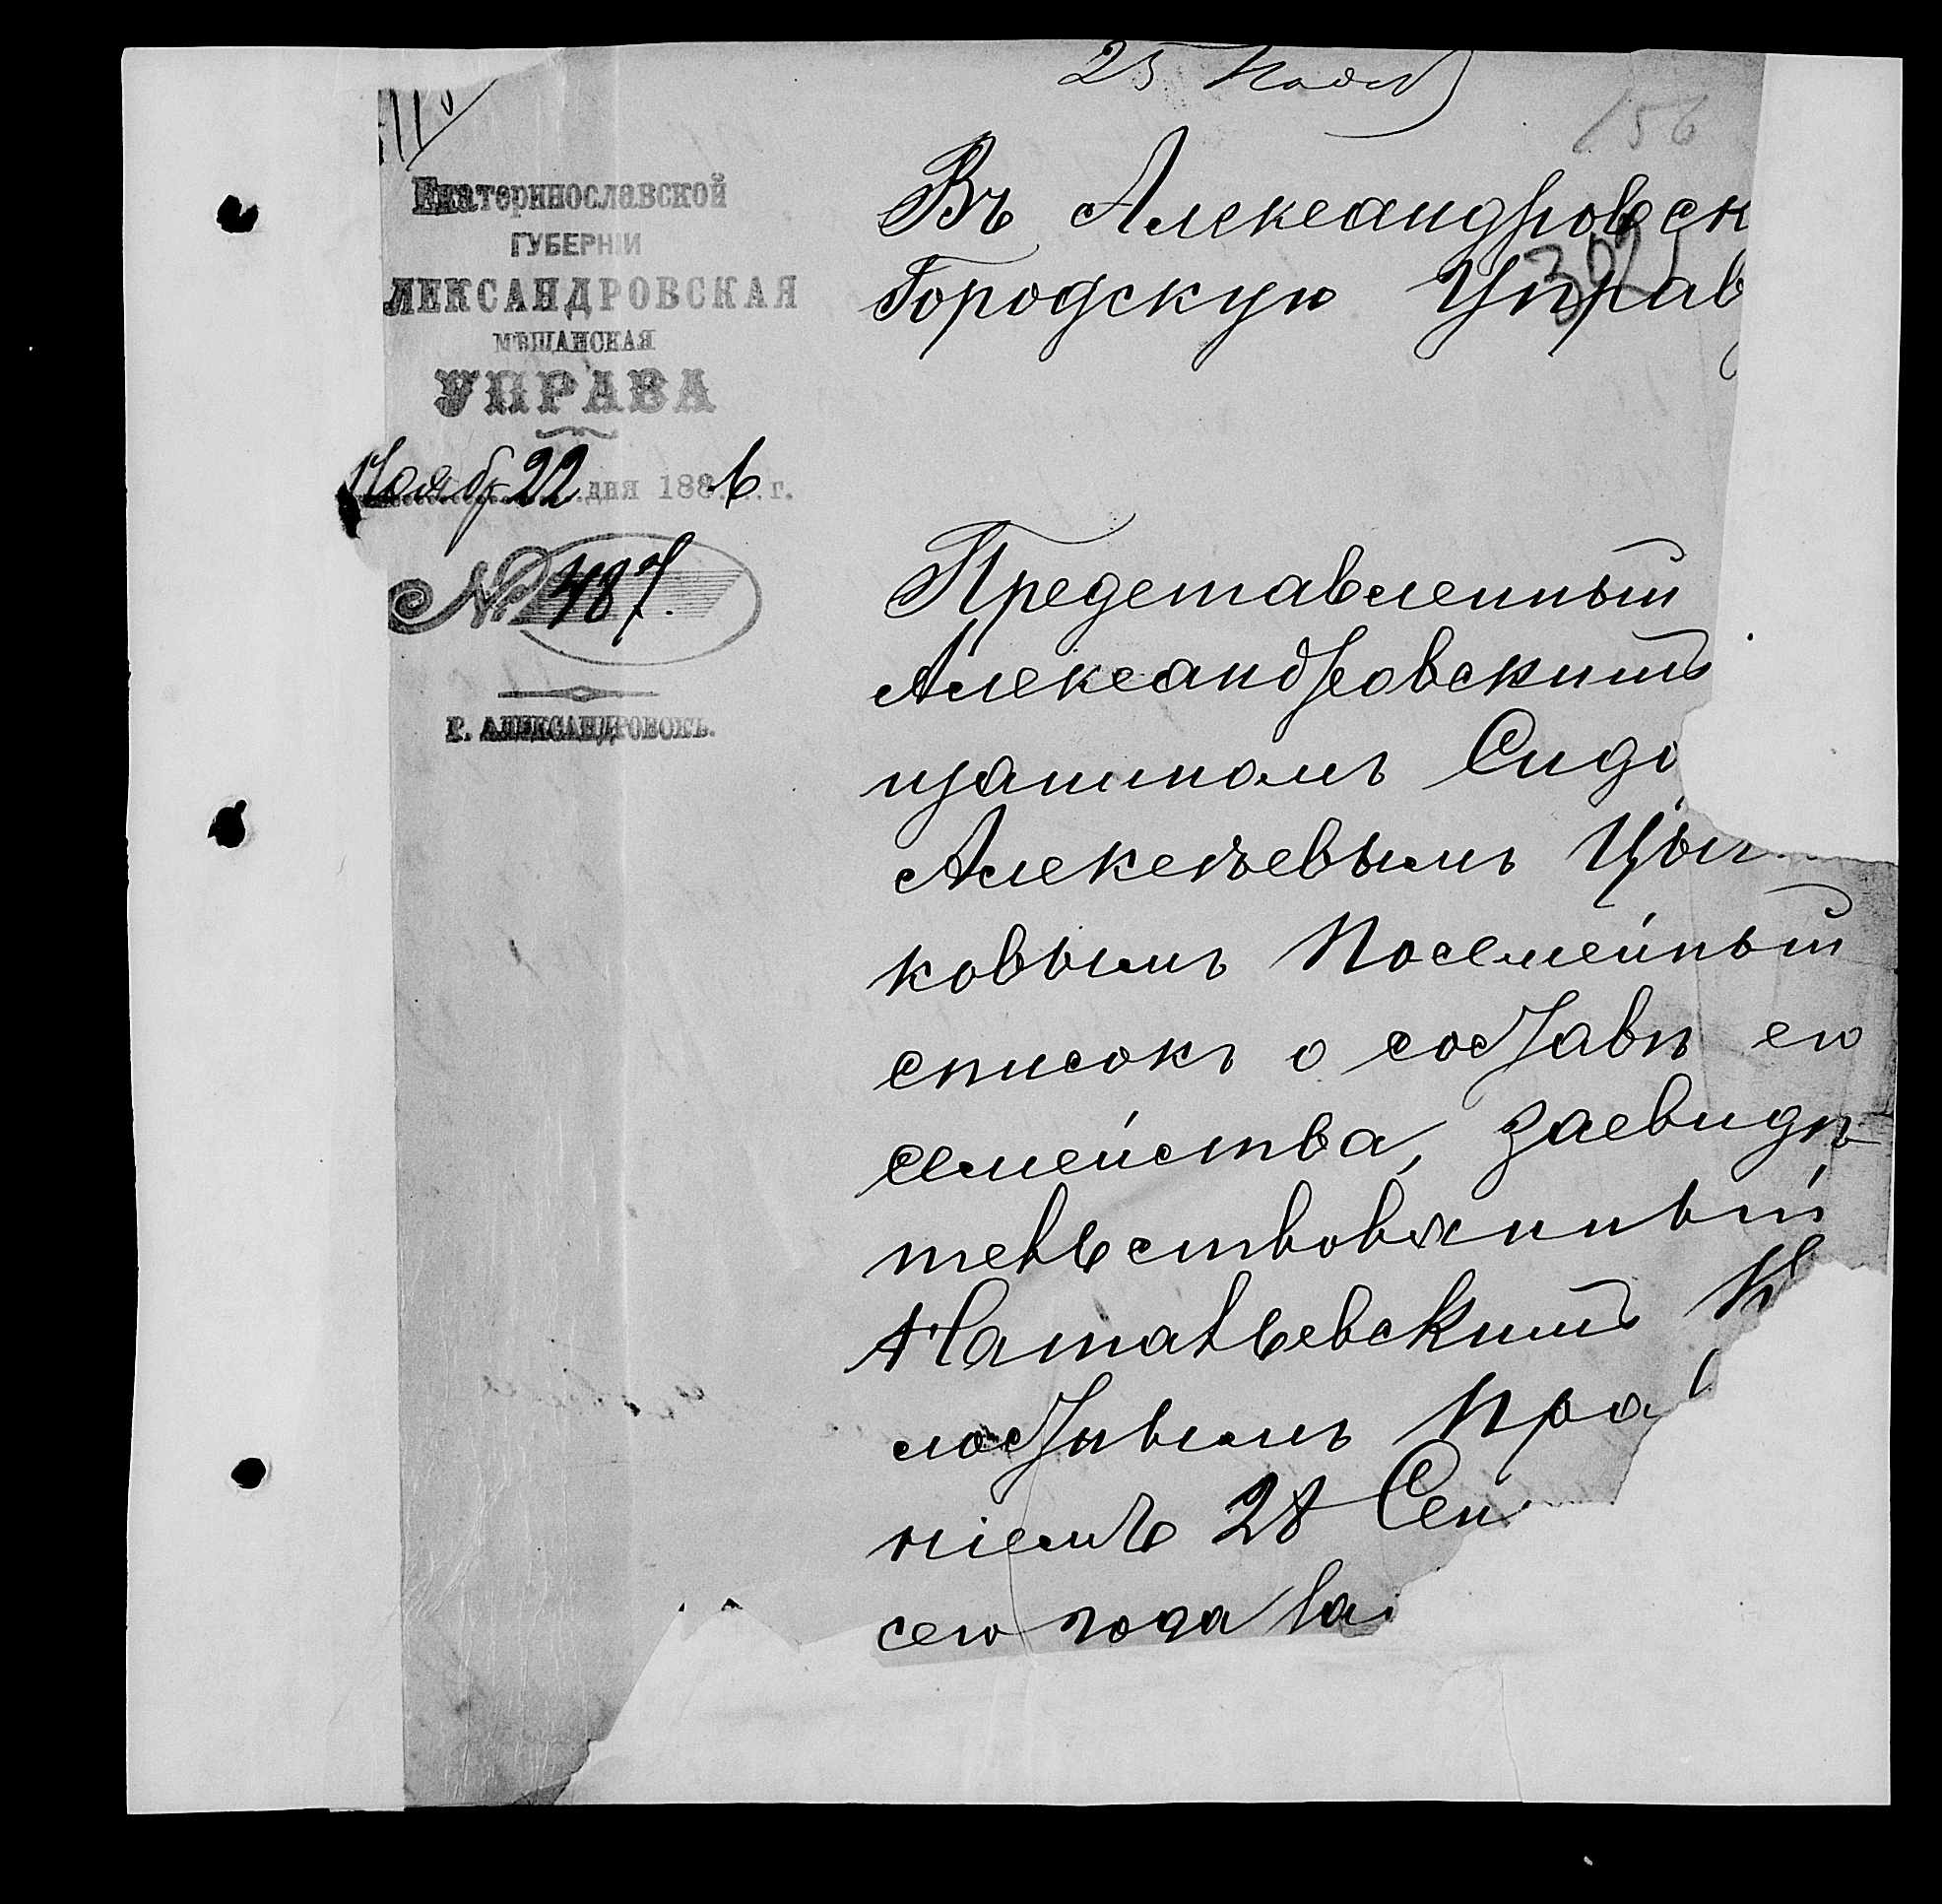 25 Нояб
156
Екатеринославской
ГУБЕРНІИ
ЛЕКСАНДРОВСКАЯ
МѢЩАНСКАЯ
УПРАВА
Нояб 22 дня 1886 г.
№ 487.
Г. АЛЕКСАНДРОВСКЪ.
Въ Александровск
Городскую Управ
302
Представленный
Александровскимъ
щаниномъ Сидо
Алексѣевымъ Цы
ковымъ Посемейный
списокъ о составѣ его
семейства, засвидѣ
тельствованный
Натальевскимъ
лостнымъ Прав
ніемъ 28 Сен
сего года за